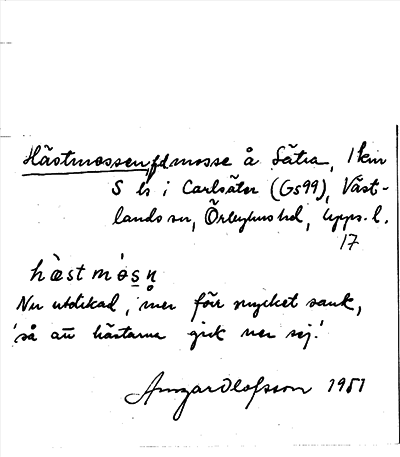 Hästmossen, fd mosse å Sätra, 1 km
S b i Carlsäter (Gs 99), Väst-
lands sn, Örbyhus hd, Upps. l.
17
hæ̀st mòsn̥
Nu utdikad, men förr mycket sank,
'så att hästarna gick ner sig.'
Olofsson 1951